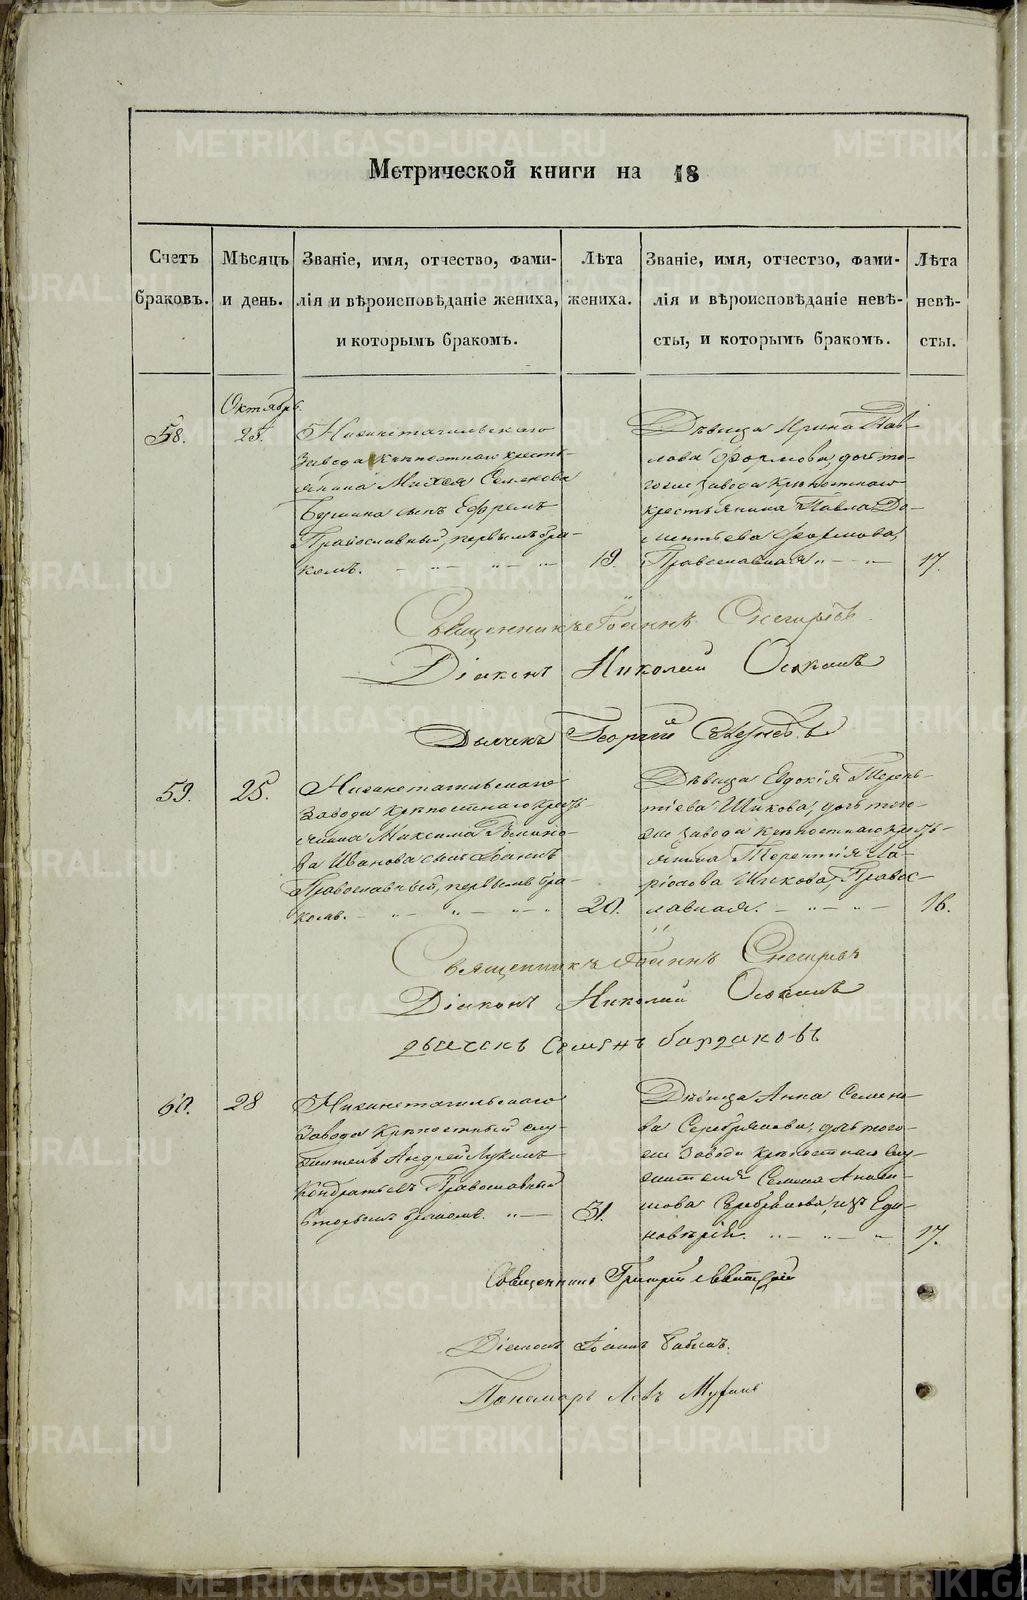 Метрической книги на 18
Счетъ браковъ.
Мѣсяцъ и день.
Званіе, имя, отчество, фами-
лія и вѣроисповѣданіе жениха,
и которымъ бракомъ.
Лѣта жениха.
Званіе, имя, отчество, фами-
лія и вѣроисповѣданіе невѣ-
сты, и которымъ бракомъ.
Лѣта невѣ-
сты.
Октябрь.
58.
25.
Нижнетагильскаго
завода крѣпостнаго кресть-
янина Семенова
сынъ Ефремъ
Православный, первымъ бра-
комъ.
19.
Дѣвица Ирина Пав-
лова дочь то-
гоже завода крѣпостнаго
крестьянина Павла До-
ментьева
Православная
17.
Священникъ Іоаннъ Снегиревъ
Діаконъ Николай
Дьячекъ Георгій
59.
25.
Нижнетагильскаго
завода крѣпостнаго кресть-
янина Максима
Иванова сынъ Іоаннъ
Православный, первымъ бра-
комъ.
20.
Дѣвица Евдокія Терень-
тіева Шикова, дочь того-
же завода крѣпостнаго кресть-
янина Терентія Ла-
ріонова Шикова, Правос-
лавная.
16.
Священникъ Іоаннъ Снегиревъ
Діаконъ Николай
дьячекъ Семенъ
60.
28
Нижнетагильскаго
завода крѣпостный слу-
житель Андрей Лукинъ
Кондратьевъ Православный
вторымъ бракомъ.
31.
Дѣвица Анна Семено-
ва Серебрякова, дочь того-
же завода крѣпостнаго слу-
жителя Семена
Серебрякова, изъ Еди-
новѣрія.
17.
Священникъ Григорій
Діаконъ Іоаннъ Бабинъ.
Пономарь Левъ